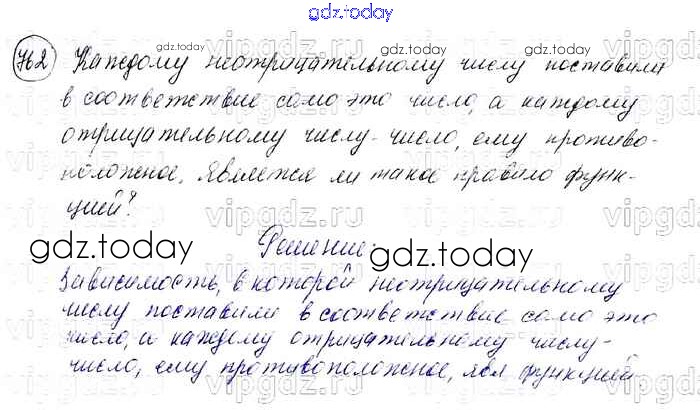 gdz.today
762 Каждому неотрицательному числу поставили
в соответствие само это число, а каждому
отрицательному числу-число, ему противо-
положное. Является ли такое правило функ-
цией?
Решение:
Зависимость, в которой неотрицательному
числу поставили в соответствие само это
число, а каждому отрицательному числу-
число, ему противоположное, явл функцией.
gdz.today
gdz.today
gdz.today
gdz.today
vipgdz.ru
vipgdz.ru
vipgdz.ru